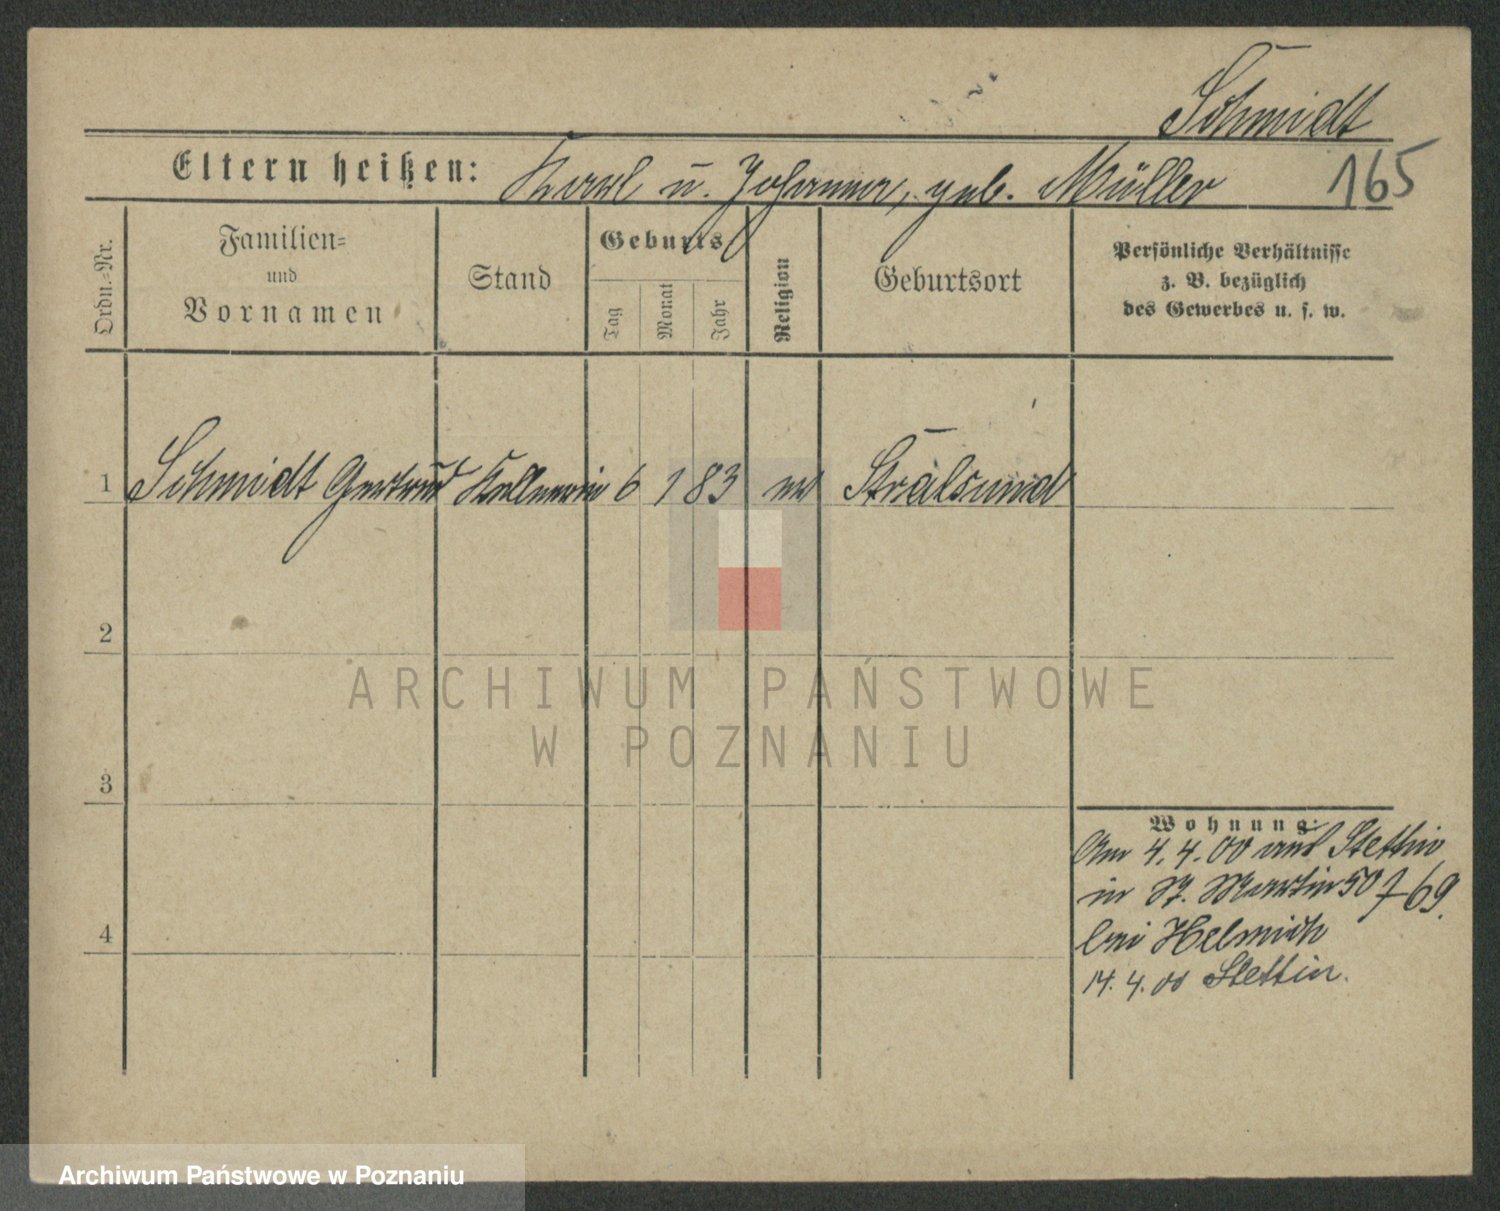 Schmidt
Eltern heißen: Karl u. Johanna, geb. Müller
165
Ordn.-Nr.
Familien-
und
Vornamen
Stand
Geburts
Tag
Monat
Jahr
Religion
Geburtsort
Persönliche Verhältnisse
z. B. bezüglich
des Gewerbes u. s. w.
1 Schmidt Gertrud Kellnerin 6 1 83 ev Stralsund
2
ARCHIWUM PAŃSTWOWE
W POZNANIU
3
Wohnung:
Am 4.4.00 aus Stettin
in St. Martin 50 f 69.
4
bei Helmich
14.4.00 Stettin.
Archiwum Państwowe w Poznaniu